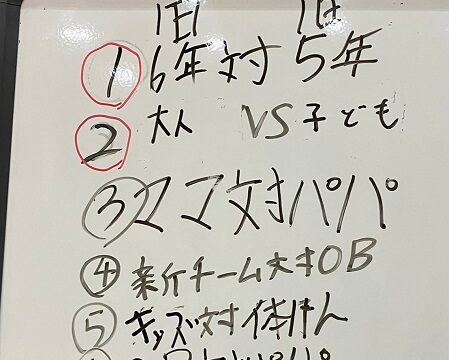 旧 旧
① 6年対5年
② 大人 VS 子ども
③ ママ対パパ
④ 新チーム対OB
⑤ キッズ対体けん